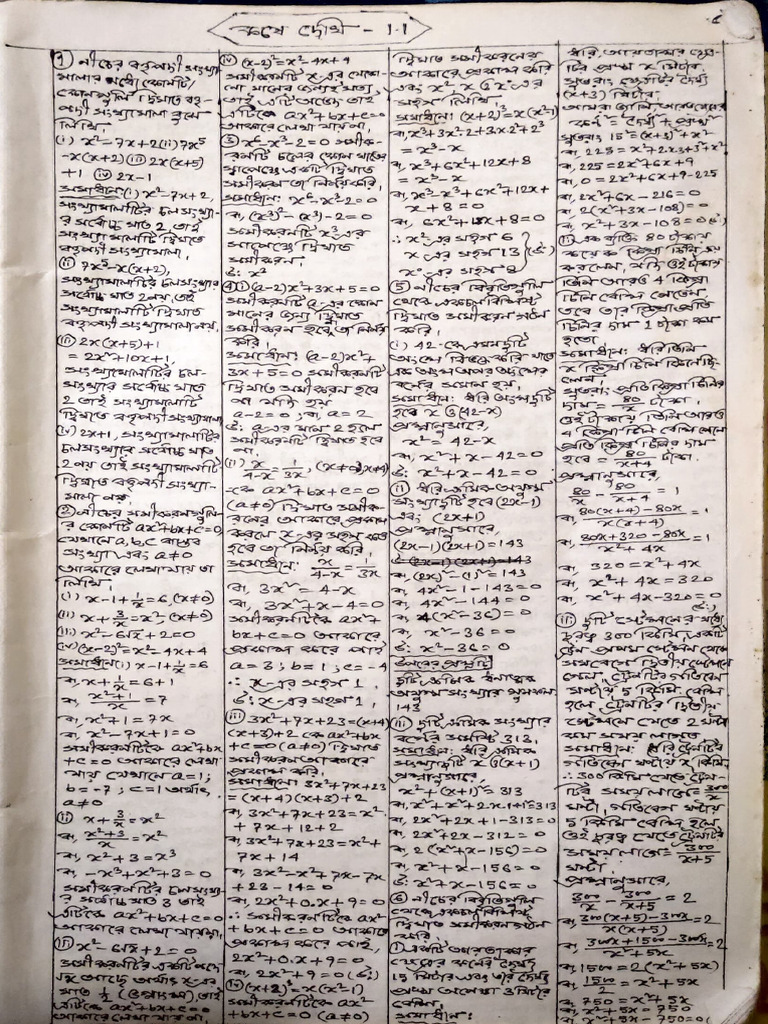 কষে দেখি - 1.1
① নীচের বহুপদী সংখ্যা
মালার মধ্যে কোনটি/
কোনগুলি দ্বিঘাত বহু-
পদী সংখ্যামালা বুঝে
লিখি।
(i) x²-7x+2 (ii) 7x⁵
-x(x+2) (iii) 2x(x+5)
+1 (iv) 2x-1
সমাধান: (i) x²-7x+2,
সংখ্যামালাটির চলসংখ্যা-
র সর্বোচ্চ ঘাত 2, তাই
সংখ্যামালাটি দ্বিঘাত
বহুপদী সংখ্যামালা।
(ii) 7x⁵-x(x+2),
সংখ্যামালাটির চলসংখ্যার
সর্বোচ্চ ঘাত 2 নয়, তাই
সংখ্যামালাটি দ্বিঘাত
বহুপদী সংখ্যামালা নয়।
(iii) 2x(x+5)+1
= 2x²+10x+1,
সংখ্যামালাটির চল-
সংখ্যার সর্বোচ্চ ঘাত
2 তাই সংখ্যামালাটি
দ্বিঘাত বহুপদী সংখ্যামালা।
(iv) 2x+1, সংখ্যামালাটির
চলসংখ্যার সর্বোচ্চ ঘাত
2 নয় তাই সংখ্যামালাটি
দ্বিঘাত বহুপদী সংখ্যা-
মালা নয়।
② নীচের সমীকরণগুলির
কোনটি ax²+bx+c=0,
যেখানে a,b,c বাস্তব
সংখ্যা এবং a≠0
আকারে লেখা যায় তা
লিখি।
(i) x-1+1/x=6, (x≠0)
(ii) x+3/x=x², (x≠0)
(iii) x²-6√x+2=0
(iv) (x-2)²=x²-4x+4
সমাধান: (i) x-1+1/x=6
বা, x+1/x=6+1
বা, x²+1/x=7
বা, x²+1=7x
বা, x²-7x+1=0
সমীকরণটিকে ax²+bx
+c=0 আকারে লেখা
যায় যেখানে a=1;
b=-7; c=1 অর্থাৎ,
a≠0
(ii) x+3/x=x²
বা, x²+3/x=x²
বা, x²+3=x³
বা, -x³+x²+3=0
সমীকরণটির চলসংখ্যা-
র সর্বোচ্চ ঘাত 3 তাই
এটিকে ax²+bx+c=0
আকারে লেখা যায় না।
(iii) x²-6√x+2=0
সমীকরণটির একটি পদে
√x আছে অর্থাৎ x-এর
ঘাত ½ (ভগ্নাংশ) তাই
এটিকে ax²+bx+c=0
আকারে লেখা যায় না,
(iv) (x-2)²=x²-4x+4
সমীকরণটি x-এর যেকো-
নো মানের জন্যই সত্য,
তাই এটি অভেদ তাই
এটিকে ax²+bx+c=0
আকারে লেখা যায় না।
③ x⁶-x³-2=0 সমীক-
রণটি চলের কোন ঘাতের
সাপেক্ষে একটি দ্বিঘাত
সমীকরণ তা নির্ণয় করি।
সমাধান: x⁶-x³-2=0
বা, (x³)²-(x³)-2=0
সমীকরণটি x³ এর
সাপেক্ষে দ্বিঘাত
সমীকরণ।
উঃ x³
④(i) (a-2)x²+3x+5=0
সমীকরণটি a-এর কোন
মানের জন্য দ্বিঘাত
সমীকরণ হবে না তা নির্ণয়
করি।
সমাধান: (a-2)x²+
3x+5=0 সমীকরণটি
দ্বিঘাত সমীকরণ হবে
না যদি হয়
a-2=0; বা, a=2
উঃ a-এর মান 2 হলে
সমীকরণটি দ্বিঘাত হবে
না।
(ii) x/4-x=1/3x, (x≠0, x≠4)
-কে ax²+bx+c=0
(a≠0) দ্বিঘাত সমীক-
রণের আকারে প্রকাশ
করলে x-এর সহগ কত
হবে তা নির্ণয় করি।
সমাধান: x/4-x=1/3x
বা, 3x²=4-x
বা, 3x²+x-4=0
সমীকরণটিকে ax²+
bx+c=0 আকারে
প্রকাশ করে পাই
a=3; b=1; c=-4
∴ x-এর সহগ 1
উঃ x-এর সহগ 1,
(iii) 3x²+7x+23=(x+4)
(x+3)+2 কে ax²+bx
+c=0 (a≠0) দ্বিঘাত
সমীকরণ আকারে
প্রকাশ করি,
সমাধান: 3x²+7x+23
=(x+4)(x+3)+2
বা, 3x²+7x+23=x²
+7x+12+2
বা, 3x²+7x+23=x²+
7x+14
বা, 3x²-x²+7x-7x
+23-14=0
বা, 2x²+0.x+9=0
∴ সমীকরণটিকে ax²
+bx+c=0 আকারে
প্রকাশ করে পাই,
2x²+0.x+9=0
বা, 2x²+9=0 (উঃ)
(iv) (x+2)³=x(x²-1)
সমীকরণটিকে ax²+
bx+c=0 (a≠0)
দ্বিঘাত সমীকরণের
আকারে প্রকাশ করি
এবং x², x ও x⁰ এর
সহগ লিখি।
সমাধান: (x+2)³=x(x²-1)
বা, x³+3x²·2+3.x.2²+2³
= x³-x
বা, x³+6x²+12x+8
= x³-x
বা, x³-x³+6x²+12x+
x+8=0
বা, 6x²+13x+8=0
∴ x²-এর সহগ 6
x-এর সহগ 13 (উঃ)
x⁰-এর সহগ 8
⑤ নীচের বিবৃতিগুলি
থেকে একচলবিশিষ্ট
দ্বিঘাত সমীকরণ গঠন
করি।
(i) 42-কে এমন দুটি
অংশে বিভক্ত করি যাতে
এক অংশ অপর অংশের
বর্গের সমান হয়,
সমাধান: ধরি অংশ দুটি
হবে x ও (42-x)
প্রশ্নানুসারে,
x²=42-x
বা, x²+x-42=0
উঃ x²+x-42=0
(ii) ধরি ক্রমিক অযুগ্ম
সংখ্যা দুটি হবে (2x-1)
এবং (2x+1)
প্রশ্নানুসারে,
(2x-1)(2x+1)=143
বা, (2x-1)(2x+1)=143
বা, (2x)²-(1)²=143
বা, 4x²-1-143=0
বা, 4x²-144=0
বা, 4(x²-36)=0
বা, x²-36=0
উঃ x²-36=0
উপরের প্রশ্নটি
দুটি ক্রমিক ধনাত্মক
অযুগ্ম সংখ্যার গুণফল
143
(iii) দুটি ক্রমিক সংখ্যার
বর্গের সমষ্টি 313,
সমাধান: ধরি ক্রমিক
সংখ্যা দুটি x ও (x+1)
প্রশ্নানুসারে,
x²+(x+1)²=313
বা, x²+x²+2.x.1+1²=313
বা, 2x²+2x+1-313=0
বা, 2x²+2x-312=0
বা, 2(x²+x-156)=0
বা, x²+x-156=0
উঃ x²+x-156=0
⑥ নীচের বিবৃতিগুলি
থেকে একচলবিশিষ্ট
দ্বিঘাত সমীকরণ গঠন
করি
(i) একটি আয়তাকার
ক্ষেত্রের কর্ণের দৈর্ঘ্য
15 মিটার এবং তার দৈর্ঘ্য
প্রস্থ অপেক্ষা 3 মিটার
বেশি।
সমাধান:
ধরি, আয়তাকার ক্ষেত্র-
টির প্রস্থ x মিটার,
সুতরাং ক্ষেত্রটির দৈর্ঘ্য
(x+3) মিটার,
আমরা জানি, আয়তক্ষেত্রের
কর্ণ² = দৈর্ঘ্য² + প্রস্থ²
সুতরাং 15²=(x+3)²+x²
বা, 225=x²+2x3+3²+x²
বা, 225=2x²+6x+9
বা, 0=2x²+6x+9-225
বা, 2x²+6x-216=0
বা, 2(x²+3x-108)=0
বা, x²+3x-108=0 (উঃ)
(ii) এক ব্যক্তি 80 টাকায়
কয়েক কিগ্রা চিনি ক্রয়
করলেন, যদি ওই টাকায়
তিনি আরও 4 কিগ্রা
চিনি বেশি পেতেন
তবে তার কিগ্রা প্রতি
চিনির দাম 1 টাকা কম
হতো
সমাধান: ধরি তিনি
x কিগ্রা চিনি কিনেছি-
লেন,
সুতরাং প্রতি কিগ্রা চিনির
দাম = 80/x টাকা,
ওই টাকায় তিনি আরও
4 কিগ্রা চিনি বেশি পেলে
প্রতি কিগ্রা চিনির দাম
হবে = 80/x+4 টাকা,
প্রশ্নানুসারে,
80/x - 80/x+4 = 1
বা, 80(x+4)-80x/x(x+4) = 1
বা, 80x+320-80x/x²+4x = 1
বা, 320=x²+4x
বা, x²+4x=320
বা, x²+4x-320=0
(উঃ)
(iii) দুটি স্টেশনের মধ্যে
দূরত্ব 300 কিমি, একটি
ট্রেন প্রথম স্টেশন থেকে
সমবেগে দ্বিতীয় স্টেশনে
গেল, ট্রেনটির গতিবেগ
ঘণ্টায় 5 কিমি বেশি
হলে ট্রেনটির দ্বিতীয়
স্টেশনে যেতে 2 ঘণ্টা
কম সময় লাগত
সমাধান: ধরি ট্রেনটির
গতিবেগ ঘণ্টায় x কিমি,
∴ 300 কিমি যেতে ট্রেন-
টির সময় লাগে= 300/x
ঘণ্টা, গতিবেগ ঘণ্টায়
5 কিমি বেশি হলে,
ওই দূরত্ব যেতে ট্রেনটির
সময় লাগে= 300/x+5
ঘণ্টা
প্রশ্নানুসারে,
300/x - 300/x+5 = 2
বা, 300(x+5)-300x/x(x+5) = 2
বা, 300x+1500-300x/x²+5x = 2
বা, 1500=2(x²+5x)
বা, 1500/2 = x²+5x
বা, 750=x²+5x
বা, x²+5x-750=0